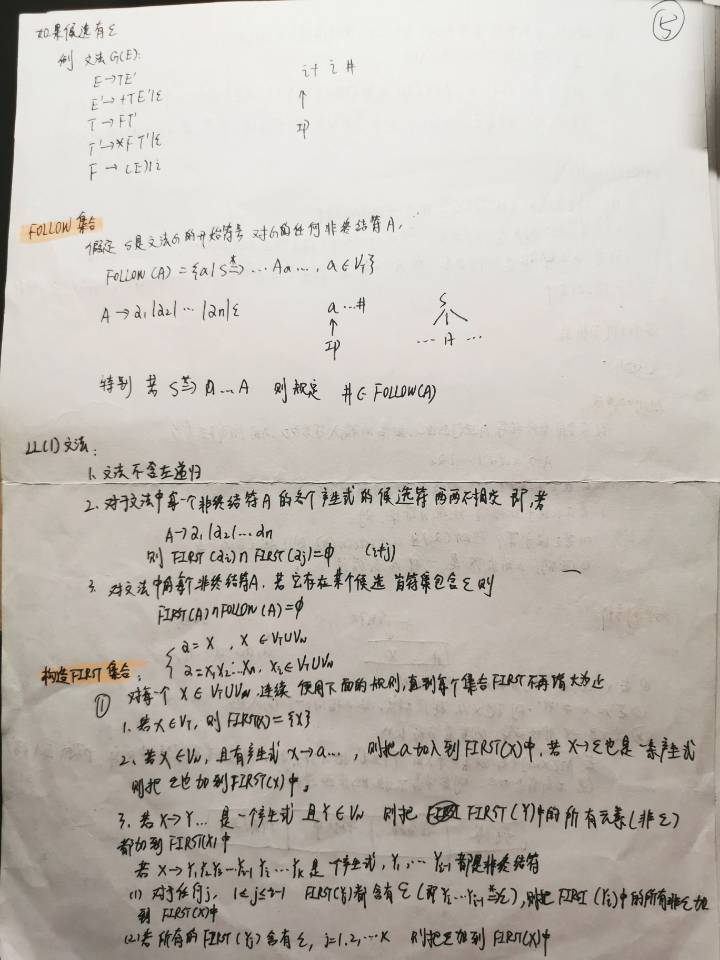 ⑤
如果候选有ε
例 文法G(E):
E→TE'
E'→+TE'|ε
T→FT'
T'→*FT'|ε
F→(E)|i
i+i#
↑
IP
FOLLOW集合
假定S是文法G的开始符号 对G的任何非终结符A,
FOLLOW(A)={a|S*⇒…Aa…, a∈VT}
A→α1|α2|…|αn|ε
a…#
↑
IP
S
… A …
特别 若 S*⇒…A 则规定 #∈FOLLOW(A)
LL(1)文法:
1、文法不含左递归
2、对于文法中每一个非终结符A的各个产生式的候选符两两不相交 即,若
A→α1|α2|…αn
则 FIRST(αi)∩FIRST(αj)=φ (i≠j)
3、对文法中每个非终结符A,若它存在某个候选首符集包含ε则
FIRST(A)∩FOLLOW(A)=φ
构造FIRST集合:
α=X, X∈VT∪VN
α=X1X2…Xn, Xi∈VT∪VN
① 对每一个X∈VT∪VN,连续使用下面的规则,直到每个集合FIRST不再增大为止
1、若X∈VT,则FIRST(X)={X}
2、若X∈VN,且有产生式X→a…,则把a加入到FIRST(X)中,若X→ε也是一条产生式
则把ε也加到FIRST(X)中。
3、若X→Y…是一个产生式且Y∈VN 则把FIRST(Y)中的所有元素(非ε)
都加到FIRST(X)中
若X→Y1Y2Y3…Yi-1Yi…YK是个产生式,Y1,…Yi-1都是非终结符
(1) 对于任何j, 1≤j≤i-1 FIRST(Yj)都含有ε(即Y1…Yi-1*⇒ε),则把FIRST(Yi)中的所有非ε加
到FIRST(X)中
(2)若所有的FIRST(Yj)含有ε, j=1.2,…K 则把ε加到FIRST(X)中